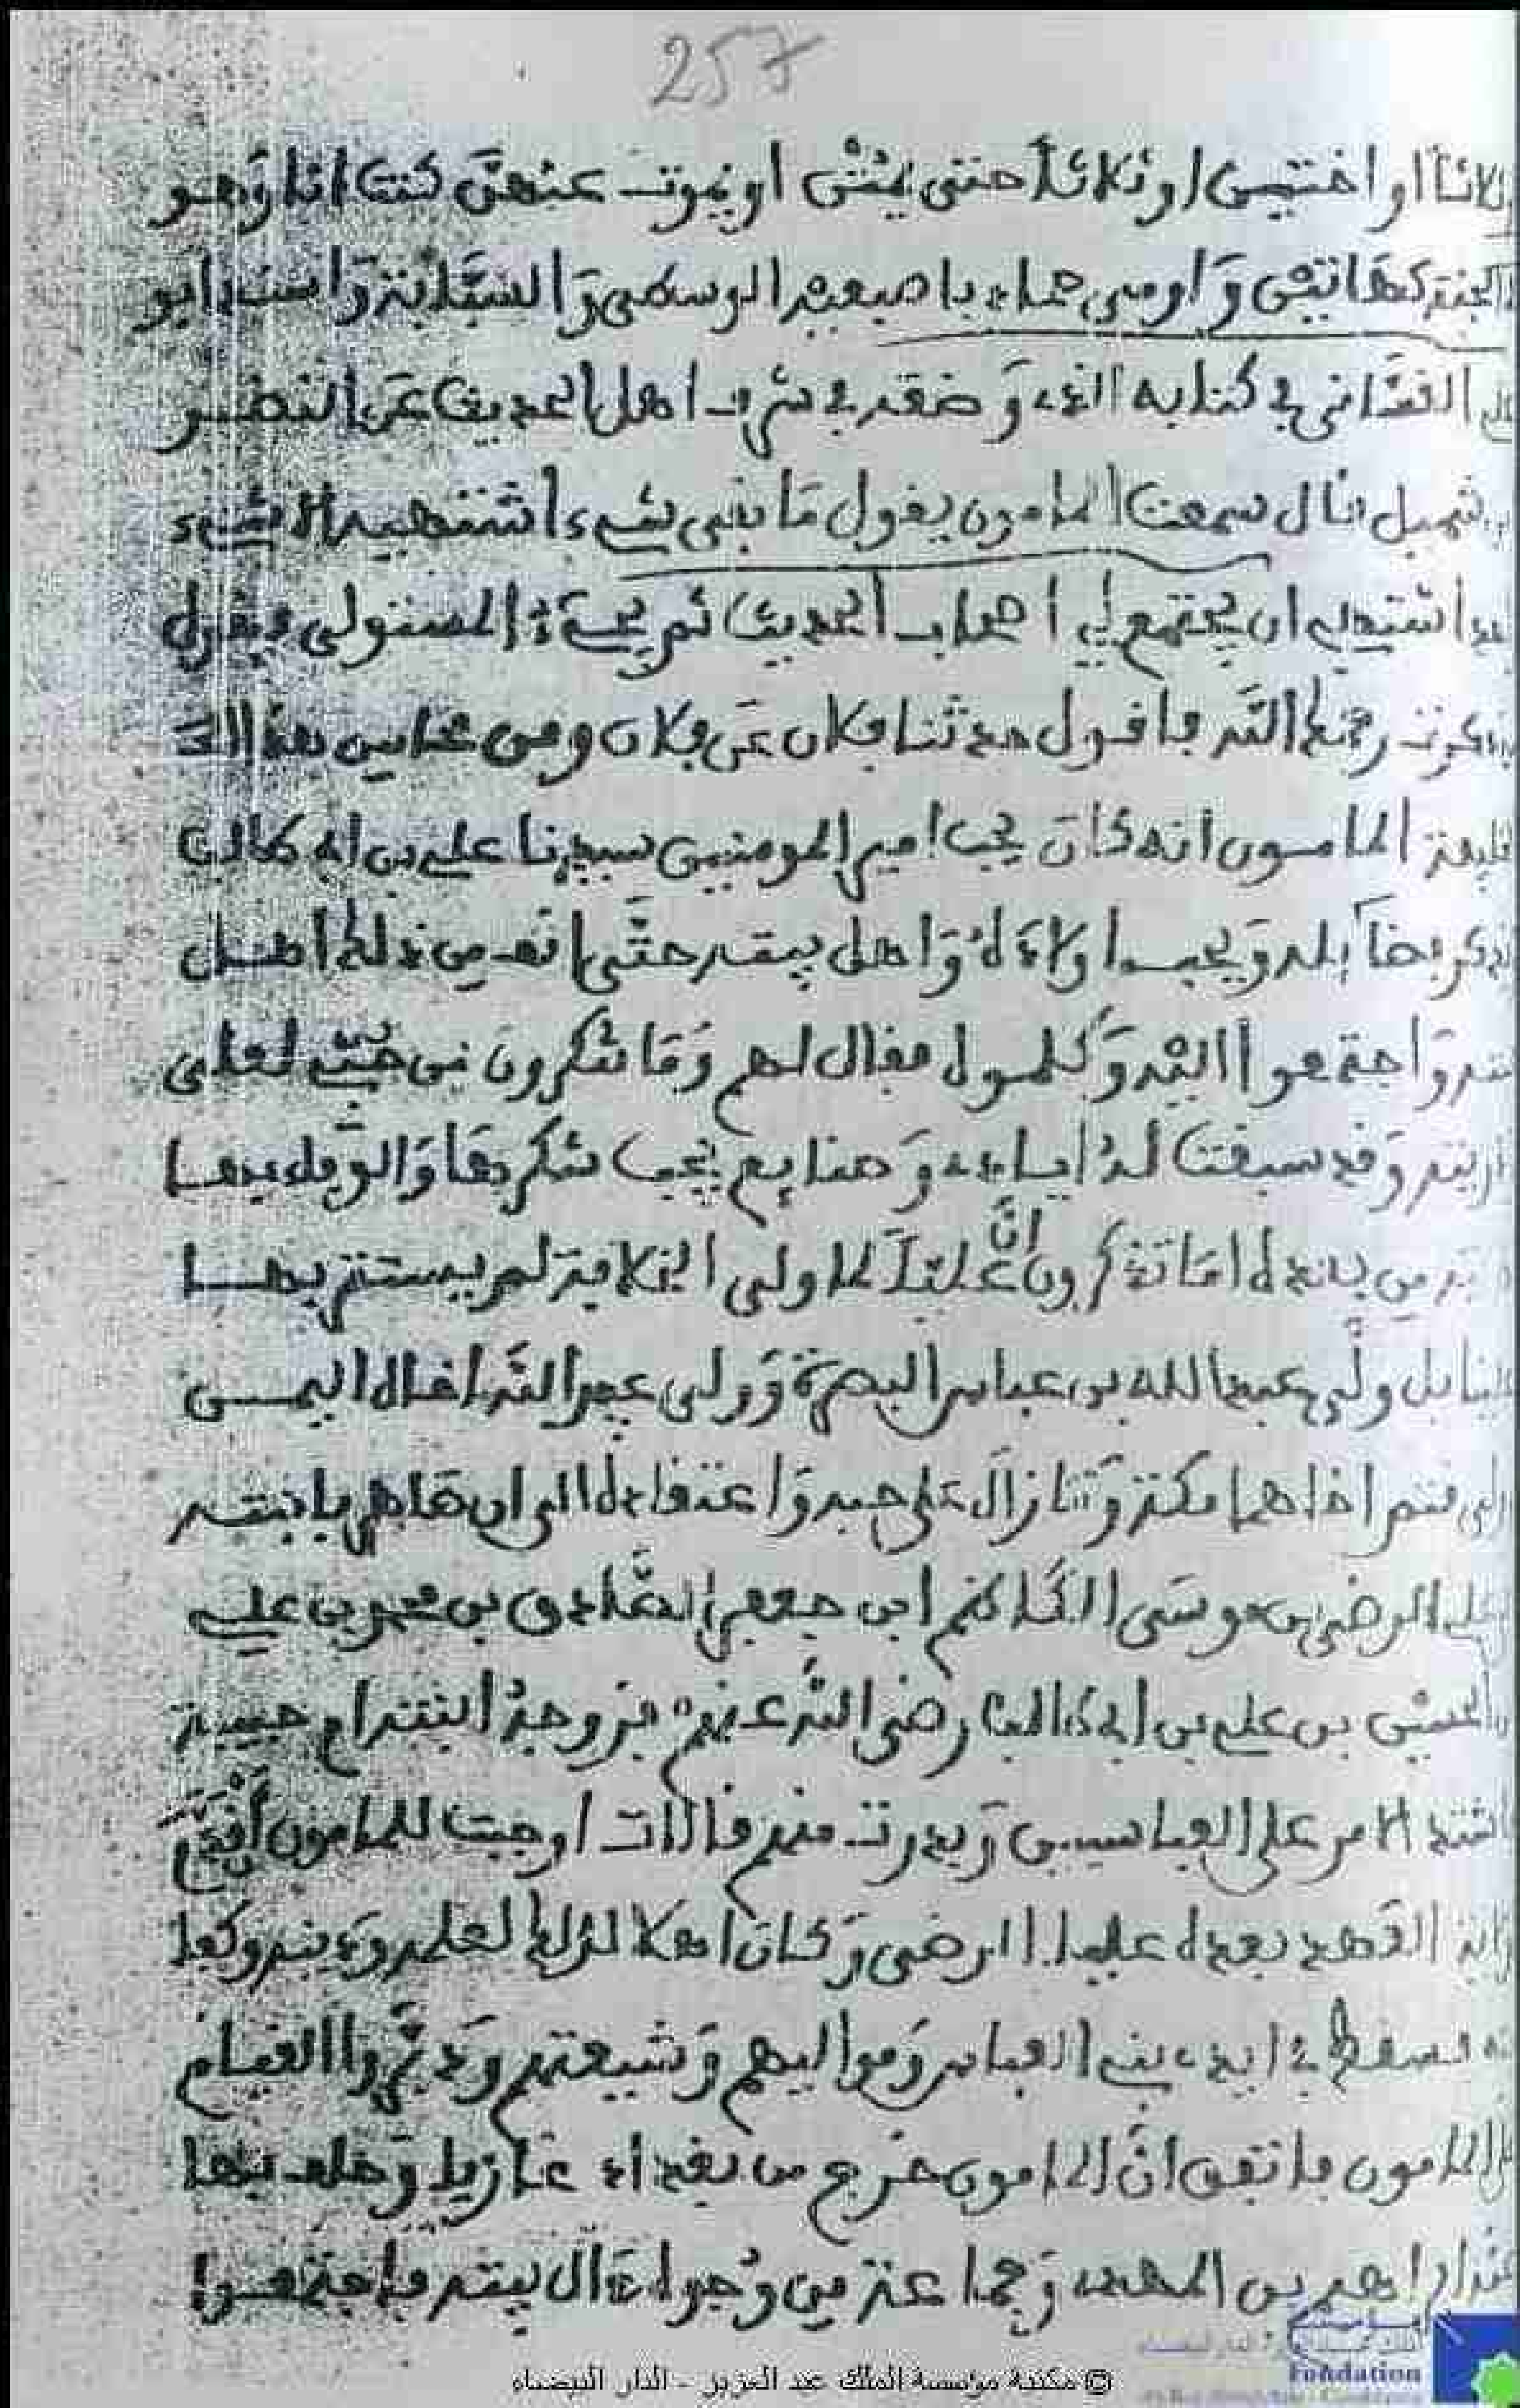 257
او اختين او ثلاثا حتى يمتن او يموت عنهن كنت انا وهو
الجنة كهاتين واومى حماد باصبعيه الوسطى والسبابة واسند ابو
الغساني في كتابه الذي وضعه في شرف اهل الحديث عن النضر
شميل قال سمعت المامون يقول ما بقي شيء اشتهيه الا شيء
اشتهي ان يجتمع لي اصحاب الحديث ثم يجيء المستولي فيقول
ذكرت رحمك الله فاقول حدثنا فلان عن فلان ومن محاسن هذا
المامون انه كان يحب امير المومنين سيدنا علي بن ابي طالب
ويحب اولاده واهل بيته حتى من ذلك اهل
واجتمعوا اليه وكلموه فقال لهم وما تنكرون من حبي لعلي
وقد سبقت له اياد وصنايع يجب شكرها والوفاء بها
من بعده اما تذكرون ان عليا لما ولي الخلافة لم يستتر بها
بل ولى عبد الله بن عباس البصرة وولى عبيد الله اخاه اليمن
قثم اخاهما مكة وما زال على حبه واعتقاده الى ان ظاهر بابنته
علي الرضى بن موسى الكاظم ابن جعفر الصادق بن محمد بن علي
الحسين بن علي بن ابي طالب رضي الله عنهم فزوجه ابنته ام حبيبة
اشتد الامر على العباسيين وبدرت منهم مقالات اوجبت للمامون
العهد بعده عليا الرضى وكان اهلا لذلك لعلمه ودينه
فسقط في ايدي بني العباس ومواليهم وشيعتهم ودبروا القيام
المامون فاتفق ان المامون خرج من بغداد غازيا وخلف بها
ابراهيم بن المهدي وجماعة من وجوه ال بيته فاجتمعوا
© مكتبة مؤسسة الملك عبد العزيز - الدار البيضاء
Foundation